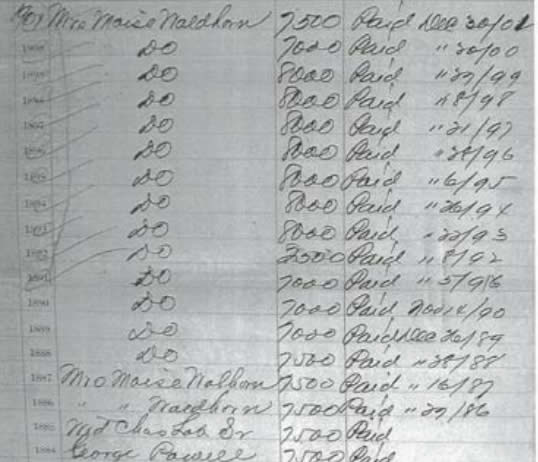 1901 Mrs Moise Waldhorn 7500 Paid Dec 30/01
DO 7000 Paid " 20/00
1899 DO 8000 Paid " 27/99
1898 DO 8000 Paid " 8/98
1897 DO 8000 Paid " 21/97
1896 DO 8000 Paid " 28/96
1895 DO 8000 Paid " 6/95
1894 DO 8000 Paid " 26/94
1893 DO 8000 Paid " 22/93
1892 DO Paid " 8/92
1891 DO 7000 Paid
1890 DO 7000 Paid Nov 14/90
1889 DO 7000 Paid Dec 26/89
1888 DO 7500 Paid " 28/88
1887 Mrs Moise Walhorn 7500 Paid " 16/87
1886 " " Waldhorn 7500 Paid " 27/86
1885 Chas Lob Sr 7500 Paid
1884 George Powell 7500 Paid